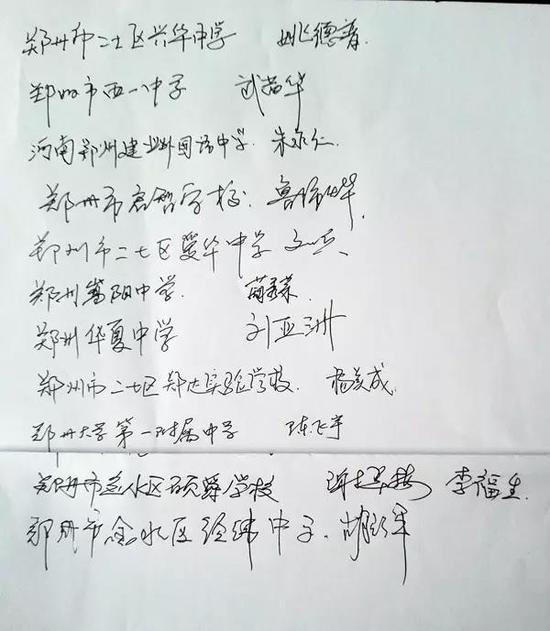 郑州市二七区兴华中学 姚德青.
郑州市五一八中学 武若华
河南郑州建业外国语中学. 朱永仁.
郑州市启智学校. 鲁
郑州市二七区爱华中学
郑州嵩阳中学.
郑州华夏中学 刘亚洲
郑州市二七区郑达实验学校. 杨炎成.
郑州大学第一附属中学 陈飞宇
郑州市金水区硕爵学校 李福生.
郑州市金水区经纬中学. 胡军